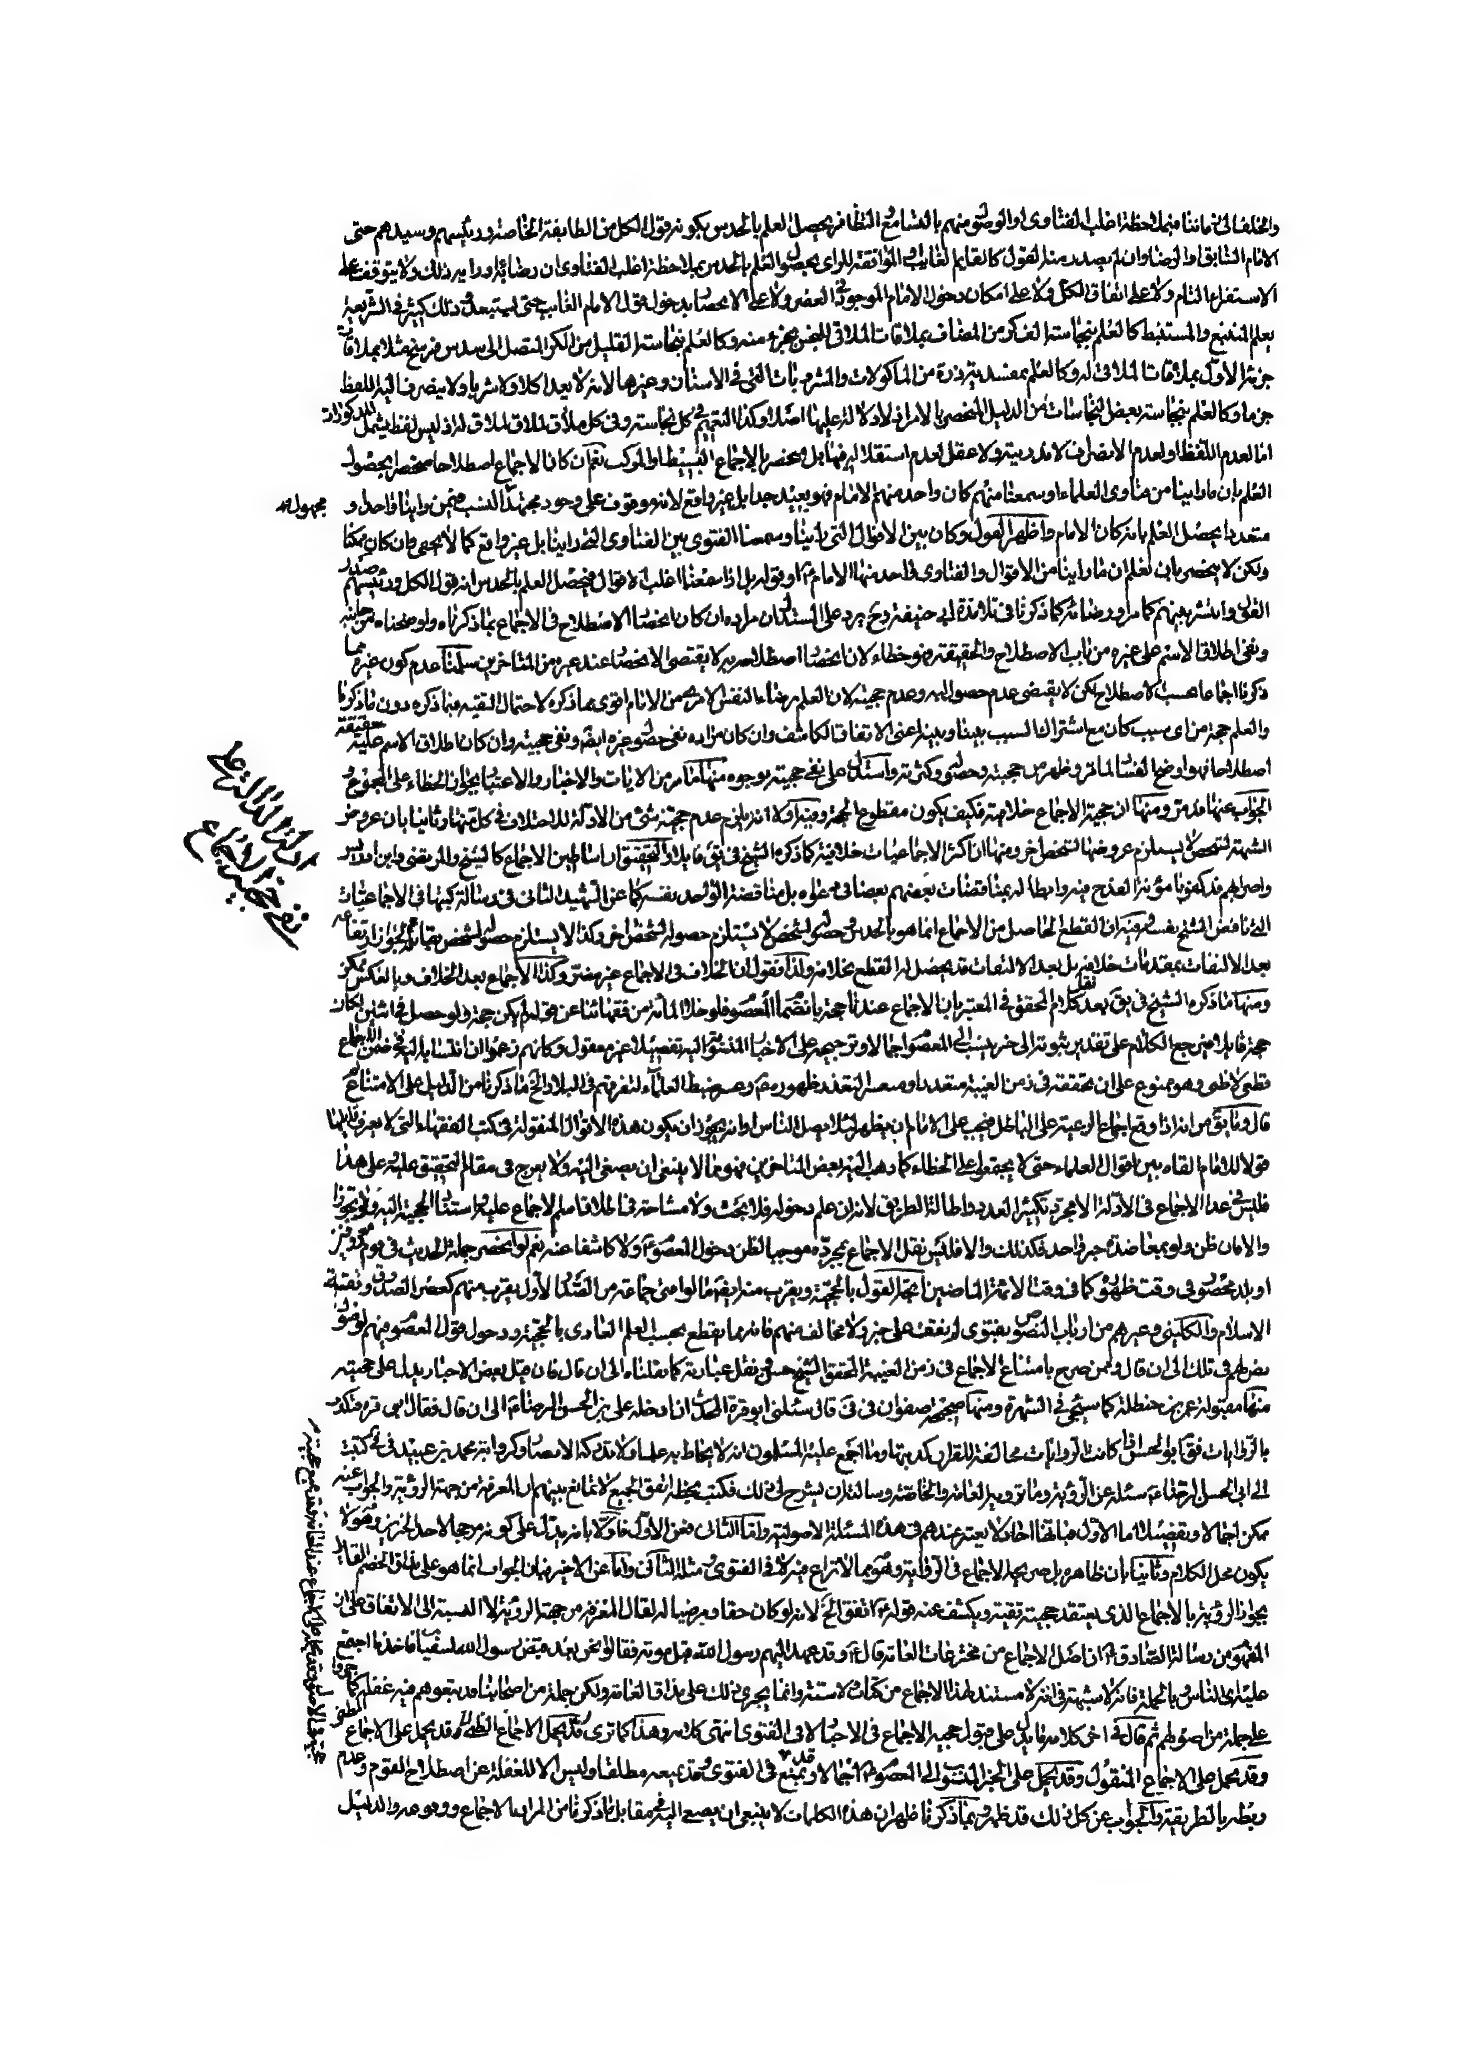 والخلف الى زماننا فبملاحظة اغلب الفتاوى او الوصول منهم بالتسامع التظافر يحصل العلم بالحدس بكونه قول الكل من الطايفة الخاصة ورئيسهم وسيدهم حتى
الامام السابق او الرضا وان لم يصدر منه القول كالقايم الغايب والموافقة للراى يحصل العلم بالحدس بملاحظة اغلب الفتاوى ان رضائه وراية ذلك ولا يتوقف على
الاستقراء التام ولا على اتفاق الكل ولا على امكان دخول الامام الموجود في العصر ولا على الانحصار بدخول قول الامام الغايب حتى يستبعد وذلك كثير في الشريعة
يعلم المتتبع والمستنبط كالعلم بنجاسة الغير كر من المضاف بملاقات الملاقى النجس بجزء منه وكالعلم بنجاسة القليل من الكر المتصل الى سدس فرسخ مثلا بملاقاة
جزئه الاول بملاقات الملاقى له وكالعلم بمفسدية ذرة من الماكولات والمشروبات التى في الاسنان وغيرها لانه لا يعد اكلا ولا شربا ولا ينصرف اليه اللفظ
جزما وكالعلم بنجاسة بعض النجاسات من الدليل المختص بالامر اذ لا دلالة عليها اصلا وكذا التعميم في كل نجاسة وفي كل ملاق لملاق لملاق له اذ ليس لفظ يشمل المذكورات
اما لعدم اللفظ او لعدم الانصراف لا بقرينة ولا عقل لعدم استقلاله فيها بل ينحصر بالاجماع البسيط او المركب نعم ان كان الاجماع اصطلاحا منحصرا بحصول
العلم بان ما راينا من فتاوى العلماء او سمعنا منهم كان واحد منهم الامام فهو بعيد جدا بل غير واقع لانه موقوف على وجود مجتهد النسب فيمن راينا واحد او مجهول
متعدد ايحصل العلم بانه كان الامام واظهر القول وكان بين الاقوال التى راينا وسمعنا الفتوى بين الفتاوى التى راينا بل غير واقع كما لا يخفى وان كان ممكنا
ولكن لا ينحصر بان نعلم ان ما راينا من الاقوال والفتاوى واحد منها الامام او قوله بل اذا سمعنا اغلب الاقوال فيحصل العلم بالحدس انه قول الكل ورئيسهم
ونفى اطلاق الاسم على غيره من باب الاصطلاح والحقيقة فهو خطاء لان انحصار اصطلاحه به لا يقتضى الانحصار عند غيره من المتاخرين سلمنا عدم كون غيره مما
ذكرنا اجماعا بحسب الاصطلاح لكن لا يقتضى عدم حصوله وعدم حجيته لان العلم برضاء
والعلم حجة من اى سبب كان مع اشتراك السبب بيننا وبينه اعنى الاتفاق الكاشف وان كان مراده نفى حصول غيره ايضا ونفى حجيته وان كان اطلاق الاسم عليه حقيقة
اصطلاحا فهو اوضح الفساد لما مر وظهر من حجيته وحصوله وكثرته واستدل على نفى حجيته بوجوه منها ما مر من الايات والاخبار والاعتبار بجواز الخطاء على المجموع
الجواب عنها قد مر ومنها ان حجية الاجماع خلافية فكيف يكون مقطوع الحجة وفيه اولا انه يلزم عدم حجية شئ من الادلة للاختلاف في كل منها وثانيا بان عروض
الشبهة لشخص لا يستلزم عروضها لشخص اخر ومنها ان اكثر الاجماعيات خلافية كما ذكره الشيخ في يق قايلا والتحقيق ان اساطين الاجماع كالشيخ والمرتضى وابن ادريس
واضرابهم قد كفونا مؤنة القدح فيه وابطاله بمناقضات بعضهم بعضا في دعواه بل مناقضة الواحد نفسه كما عن الشهيد الثانى في رسالة كتبها في الاجماعيات
التى ناقض الشيخ نفسه وفيه ان القطع الحاصل من الاجماع انما هو بالحدس وحصوله لشخص لا يستلزم حصوله لشخص اخر وكذا لا يستلزم حصوله لشخص
بعد الالتفات بمقدمات خلافه بل بعد الالتفات قد يحصل له القطع بخلافه ولذا نقول ان الخلاف في الاجماع غير مضر وكذا الاجماع بعد الخلاف وبالعكس ممكن
ومنها ما ذكره الشيخ في يق بعد نقل كلام المحقق في المعتبر بان الاجماع عندنا حجة بانضمام المعصوم فلو خلا المائة من فقهائنا عن قوله لم يكن حجة ولو حصل في اثنين لكان
حجة قايلا فيرجع الكلام على تقدير ثبوته الى خبر ينسب الى المعصوم اجمالا وترجيحه على الاخبار المنسوبة اليه تفصيلا غير معقول وكانهم زعموا ان انتسابه اليه في ضمن الاجماع
قطعى لا ظنى وهو ممنوع على ان تحققه في زمن الغيبة متعذر او متعسر لتعذر ظهوره وعسر ضبط العلماء لتفرقهم في البلاد الى ما ذكرنا من الدليل على الامتناع
قال وما يق من انه اذا وقع اجماع الرعية على الباطل فيجب على الامام ان يظهر لئلا يضل الناس او انه يجوز ان يكون هذه الاقوال المنقولة في كتب الفقهاء التى لا يعرف قايلها
قولا للامام القاه بين اقوال العلماء حتى لا يجتمعوا على الخطاء كما ذهب اليه بعض المتاخرين فهو مما لا ينبغى ان يصغى اليه ولا يعرج في مقام التحقيق عليه على هذا
فليس في عد الاجماع في الادلة الا مجرد تكثير العدد واطالة الطريق لانه ان علم دخوله فلا بحث ولا مشاحة في اطلاق اسم الاجماع عليه واستناد الحجية اليه ولو تجوزا
والا فان ظن ولو بمعاضدة خبر واحد فكذلك والا فليس نقل الاجماع بمجرده موجبا لظن دخول المعصوم ولا كاشفا عنه نعم لو انحصر جملة الحديث في قوم معروفين
او بلد محصور في وقت ظهوره كما في وقت الائمة الماضين اتجه القول بالحجية ويقرب منه ايضا ما لو افتى جماعة من الصدر الاول بقرب منهم كعصر الصدوق وثقة
الاسلام والكلينى وغيرهم من ارباب النصوص بفتوى لم نقف على خبر ولا مخالف منهم فانه مما يقطع بحسب العلم العادى بالحجية ودخول قول المعصوم فيهم لوصول
نص لهم في تلك الى ان قال وممن صرح بامتناع الاجماع في زمن الغيبة المحقق الشيخ حسن في نقل عبارته كما نقلناه الى ان قال فان قيل بعض الاخبار يدل على حجيته
منها مقبولة عمر بن حنظلة كما سيجئ في الشهرة ومنها صحيحة صفوان في في قال سئلنى ابو قرة المحدث ان ادخله على ابى الحسن الرضا الى ان قال فقال ابو قره فنكذب
بالروايات فق ابو الحسن اذا كانت الروايات مخالفة للقران كذبتها وما اجمع عليه المسلمون انه لا يحاط به علما ولا تدركه الابصار وكرواية محمد بن عبيد في في كتبت
الى ابى الحسن الرضا سئله عن الرؤية وما ترويه العامة والخاصة وسالته ان يشرح لى ذلك فكتب بخطه اتفق الجميع لا تمانع بينهم ان المعرفة من جهة الرؤية والجواب عنه
ممكن اجمالا وتفصيلا اما الاول فبانها احاد لا يعتبر عندهم في هذه المسئلة الاصولية واما الثانى فعن الاول فاولا بانه يدل على كونه مرجحا لاحد الخبرين وهو لا
يكون محل الكلام وثانيا بان ظاهره بل صريحه الاجماع في الرواية وهو مما لا نزاع فيه لا في الفتوى مثله الثانى واما عن الاخير فبان الجواب انما هو على مذاق الخصم القايل
بجواز الرؤية بالاجماع الذى يعتقد حجيته تقية ويكشف عنه قوله اتفق الخ لانه لو كان حقا ومرضيا له لقال المعرفة من جهة الرؤية لا النسبة الى الاتفاق على ان
المفهوم من رسالة الصادق ان اصل الاجماع من مخترعات العامة قال وقد عهد اليهم رسول الله قبل موته فقالوا نحن بعد قبض رسول الله يسعنا ان ناخذ ما اجمع
عليه راى الناس وبالجملة فانه لا شبهة في انه لا مستند لهذا الاجماع من كتاب ولا سنة وانما يجرى ذلك على مذاق العامة ولكن جملة من اصحابنا قد تبعوهم فيه غفلة كما جروا
على جملة من اصولهم ثم قال في اخر كلامه ما يدل على قبول حجية الاجماع في الاخبار لا في الفتوى انتهى كلامه وهذا كما ترى قد يحمل الاجماع الظنى وقد يحمل على الاجماع القطعى
وقد يحمل على الاجماع المنقول وقد يحمل على الخبر المنسوب الى المعصوم اجمالا وقد يمنع في الفتوى وقد يمنعه مطلقا وليس الا للغفلة عن اصطلاح القوم وعدم
ربطه بالطريقة والجواب عن كل ذلك قد ظهر وبما ذكرنا ظهر ان هذه الكلمات لا ينبغى ان يصغى اليه في مقابل ما ذكرنا من المراد بالاجماع ووقوعه والدليل
ادلة الدالة على
نفى حجية الاجماع